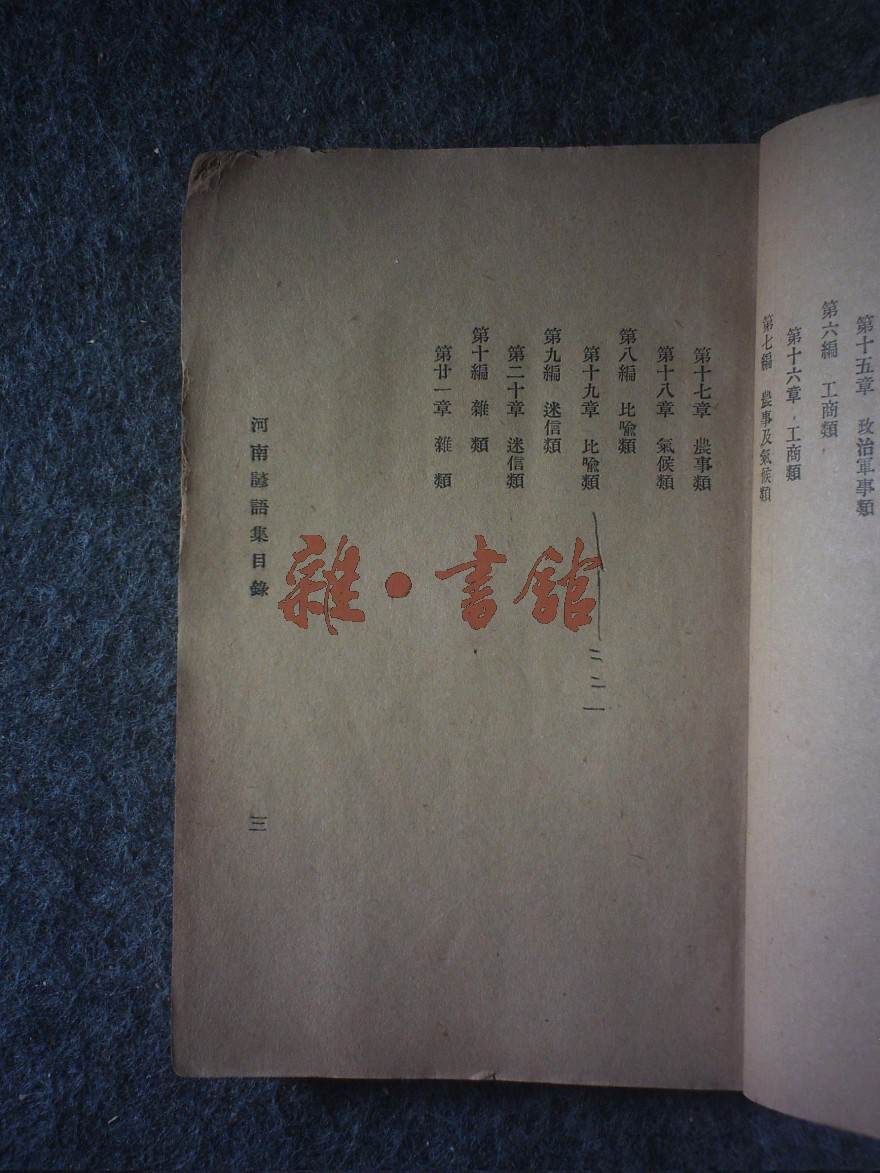 第十五章　政治軍事類
第六編　工商類
第十六章　工商類
第七編　農事及氣候類
第十七章　農事類
第十八章　氣候類
第八編　比喩類
第十九章　比喩類
二二一
第九編　迷信類
第二十章　迷信類
第十編　雜　類
第廿一章　雜　類
河南諺語集目錄
三
雜・書館